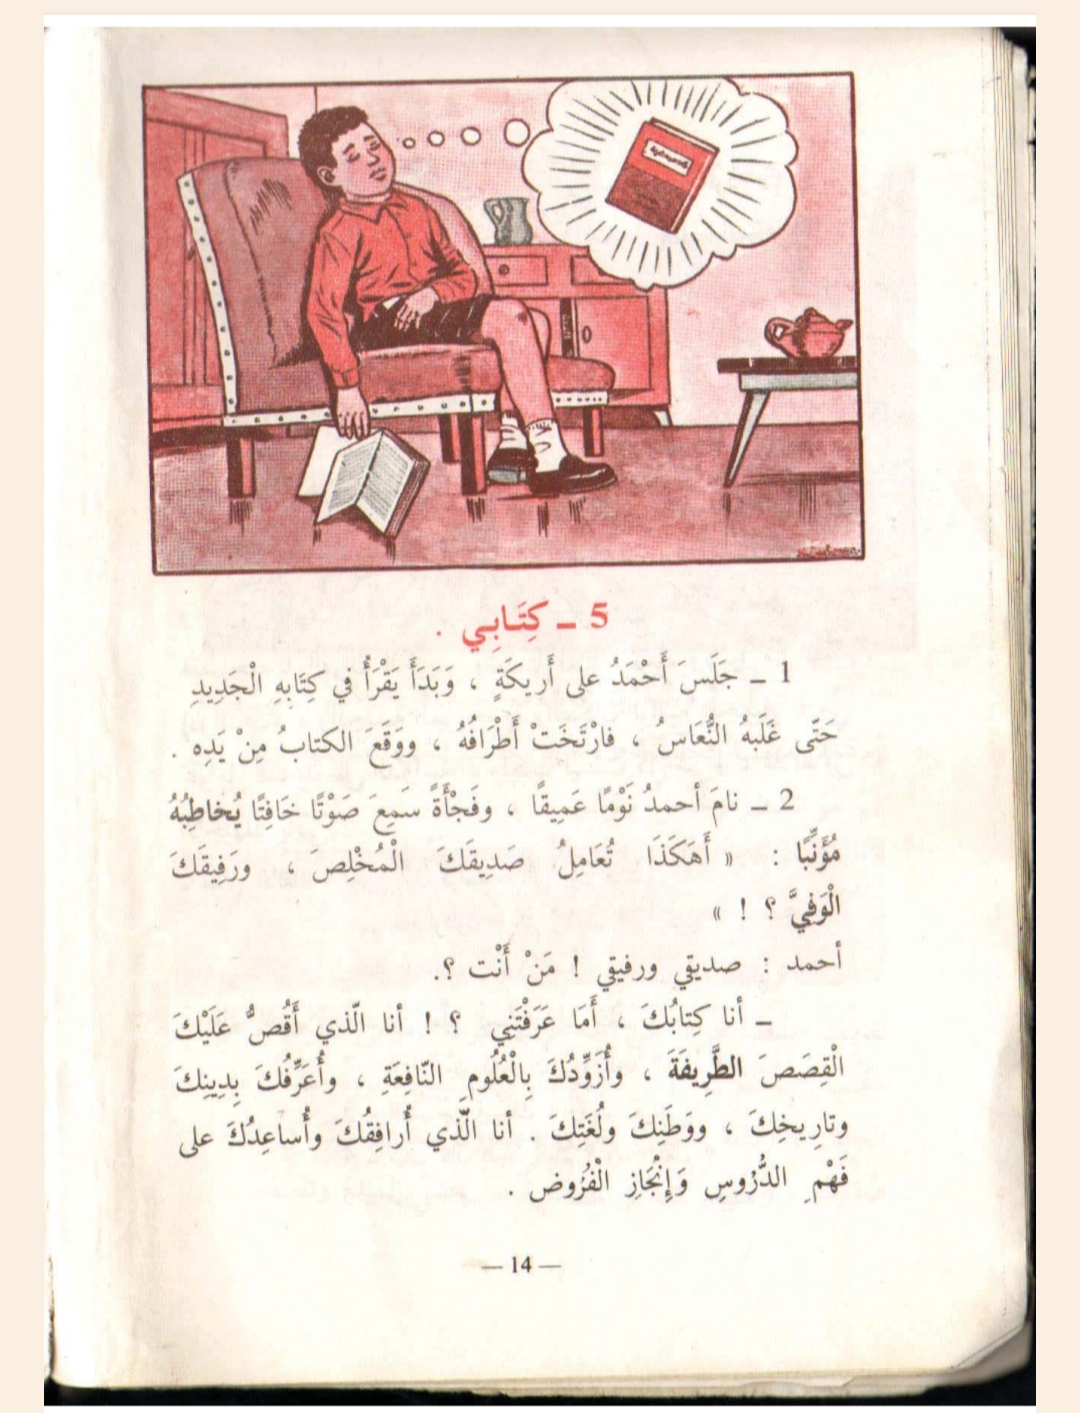 5 ـ كِتَابِي .
1 ـ جَلَسَ أَحْمَدُ على أَرِيكَةٍ ، وَبَدَأَ يَقْرَأُ في كِتَابِهِ الْجَدِيدِ
حَتّى غَلَبهُ النُّعَاسُ ، فارْتَخَتْ أَطْرَافُهُ ، ووَقَعَ الكتابُ مِنْ يَدِه .
2 ـ نامَ أحمدُ نَوْمًا عَمِيقًا ، وفَجْأَةً سَمِعَ صَوْتًا خَافِتًا يُخاطِبُهُ
مُؤَنِّبًا : « أَهَكَذَا تُعَامِلُ صَدِيقَكَ الْمُخْلِصَ ، ورَفِيقَكَ
الْوَفِيَّ ؟ ! »
أحمد : صديقي ورفيقي ! مَنْ أَنْت ؟.
ـ أنا كِتابُكَ ، أَمَا عَرَفْتَنِي ؟ ! أنا الّذي أَقُصُّ عَلَيْكَ
الْقِصَصَ الطَّرِيفَةَ ، وأُزَوِّدُكَ بِالْعُلُومِ النّافِعَةِ ، وأُعَرِّفُكَ بِدِينِكَ
وتارِيخِكَ ، ووَطَنِكَ ولُغَتِكَ . أنا الّذي أُرافِقُكَ وأُساعِدُكَ على
فَهْمِ الدُّرُوسِ وَإِنْجَازِ الْفُرُوض .
— 14 —